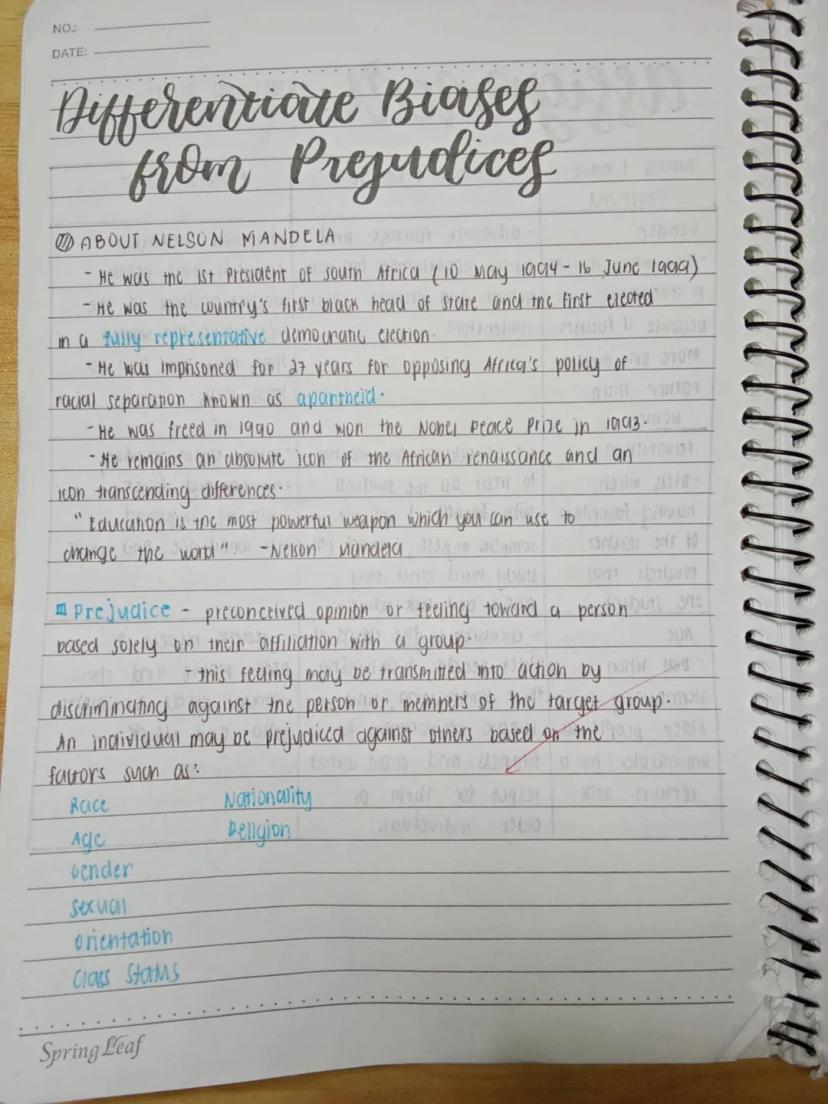 NO.:
DATE:
Differentiate Biases
from Prejudices
ABOUT NELSON MANDELA
- He was the 1st President of South Africa (10 May 1994 - 16 June 1999)
- He was the country's first black head of state and the first elected
in a fully representative democratic election.
- He was imprisoned for 27 years for opposing Africa's policy of
racial separation known as apartheid.
- He was freed in 1990 and won the Nobel Peace Prize in 1993.
- He remains an absolute icon of the African renaissance and an
icon transcending differences.
"Education is the most powerful weapon which you can use to
change the world" -Nelson Mandela
Prejudice - preconceived opinion or feeling toward a person
based solely on their affiliation with a group.
- this feeling may be transmitted into action by
discriminating against the person or members of the target group.
An individual may be prejudiced against others based on the
factors such as:
Race Nationality
Age Religion
Gender
Sexual
Orientation
Class Status
Spring Leaf